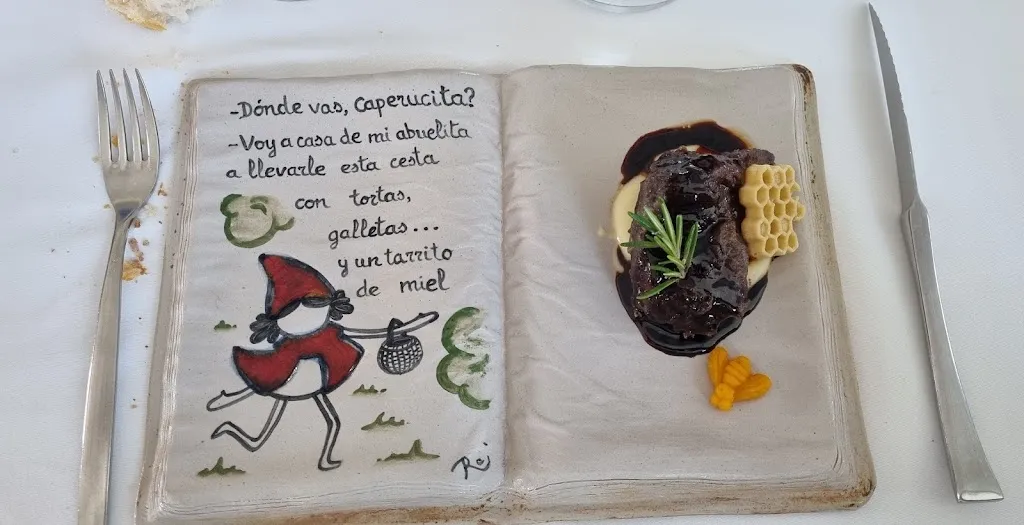 -Dónde vas, Caperucita?
-Voy a casa de mi abuelita
a llevarle esta cesta
con tortas,
galletas...
y un tarrito
de miel